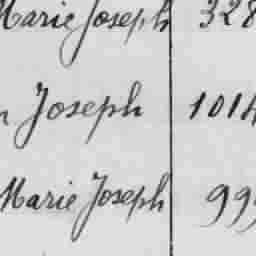 Marie Joseph 328
Joseph 1014
Marie Joseph 999